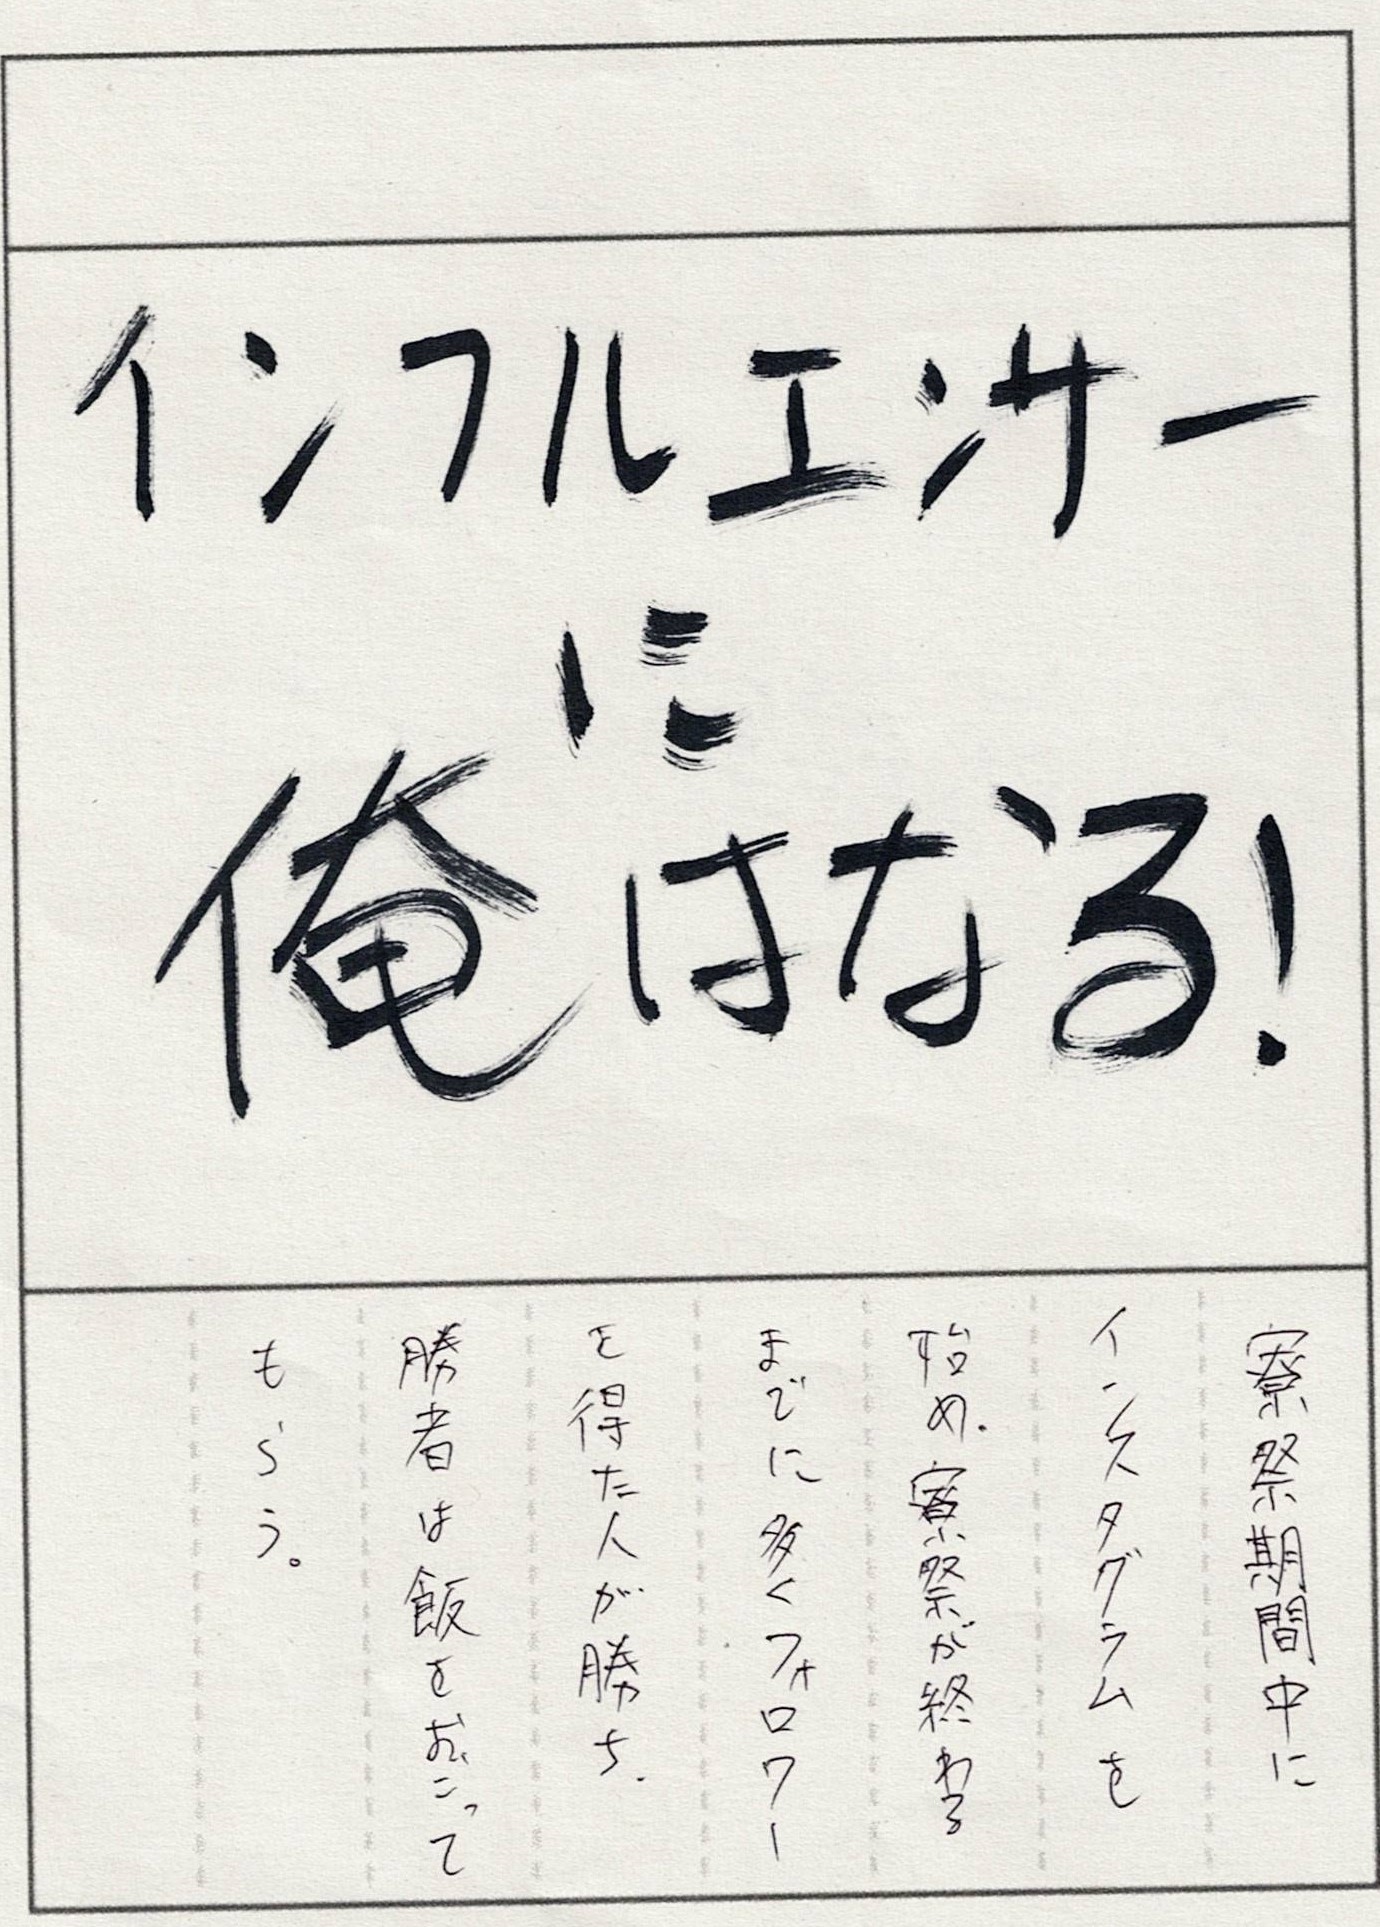 インフルエンサー
に
俺はなる!
寮祭期間中に
インスタグラムを
始め、寮祭が終わる
までに多くフォロワー
を得た人が勝ち、
勝者は飯をおごって
もらう。